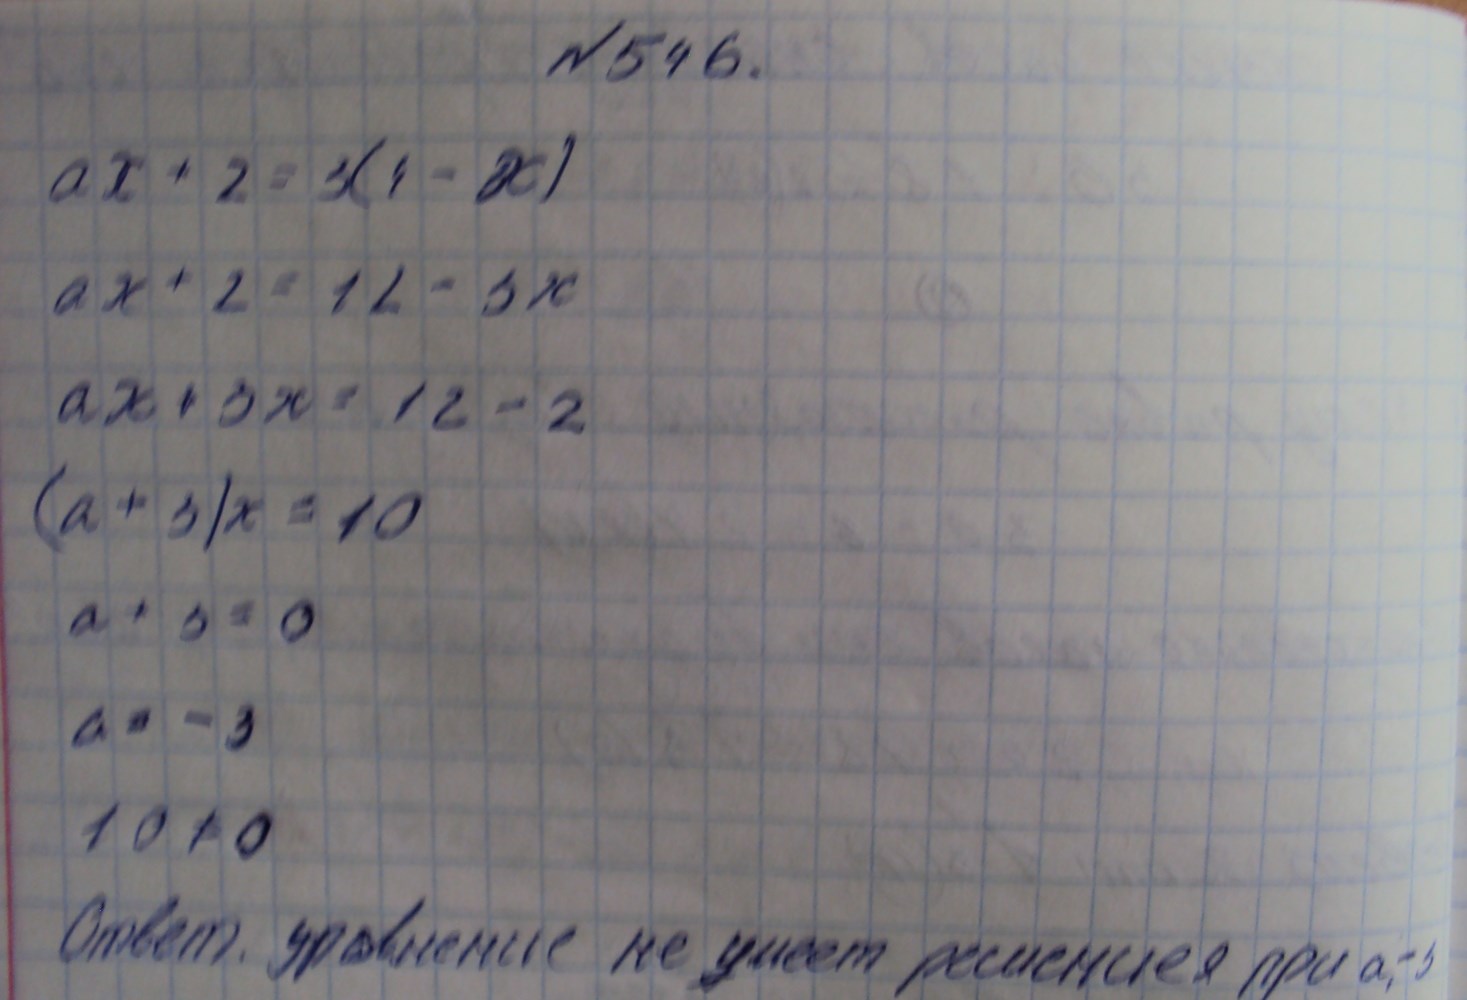 №546.
ax + 2 = 3(4 - x)
ax + 2 = 12 - 3x
ax + 3x = 12 - 2
(a + 3)x = 10
a + 3 = 0
a = -3
10 ≠ 0
Ответ. уравнение не имеет решения при a=-3